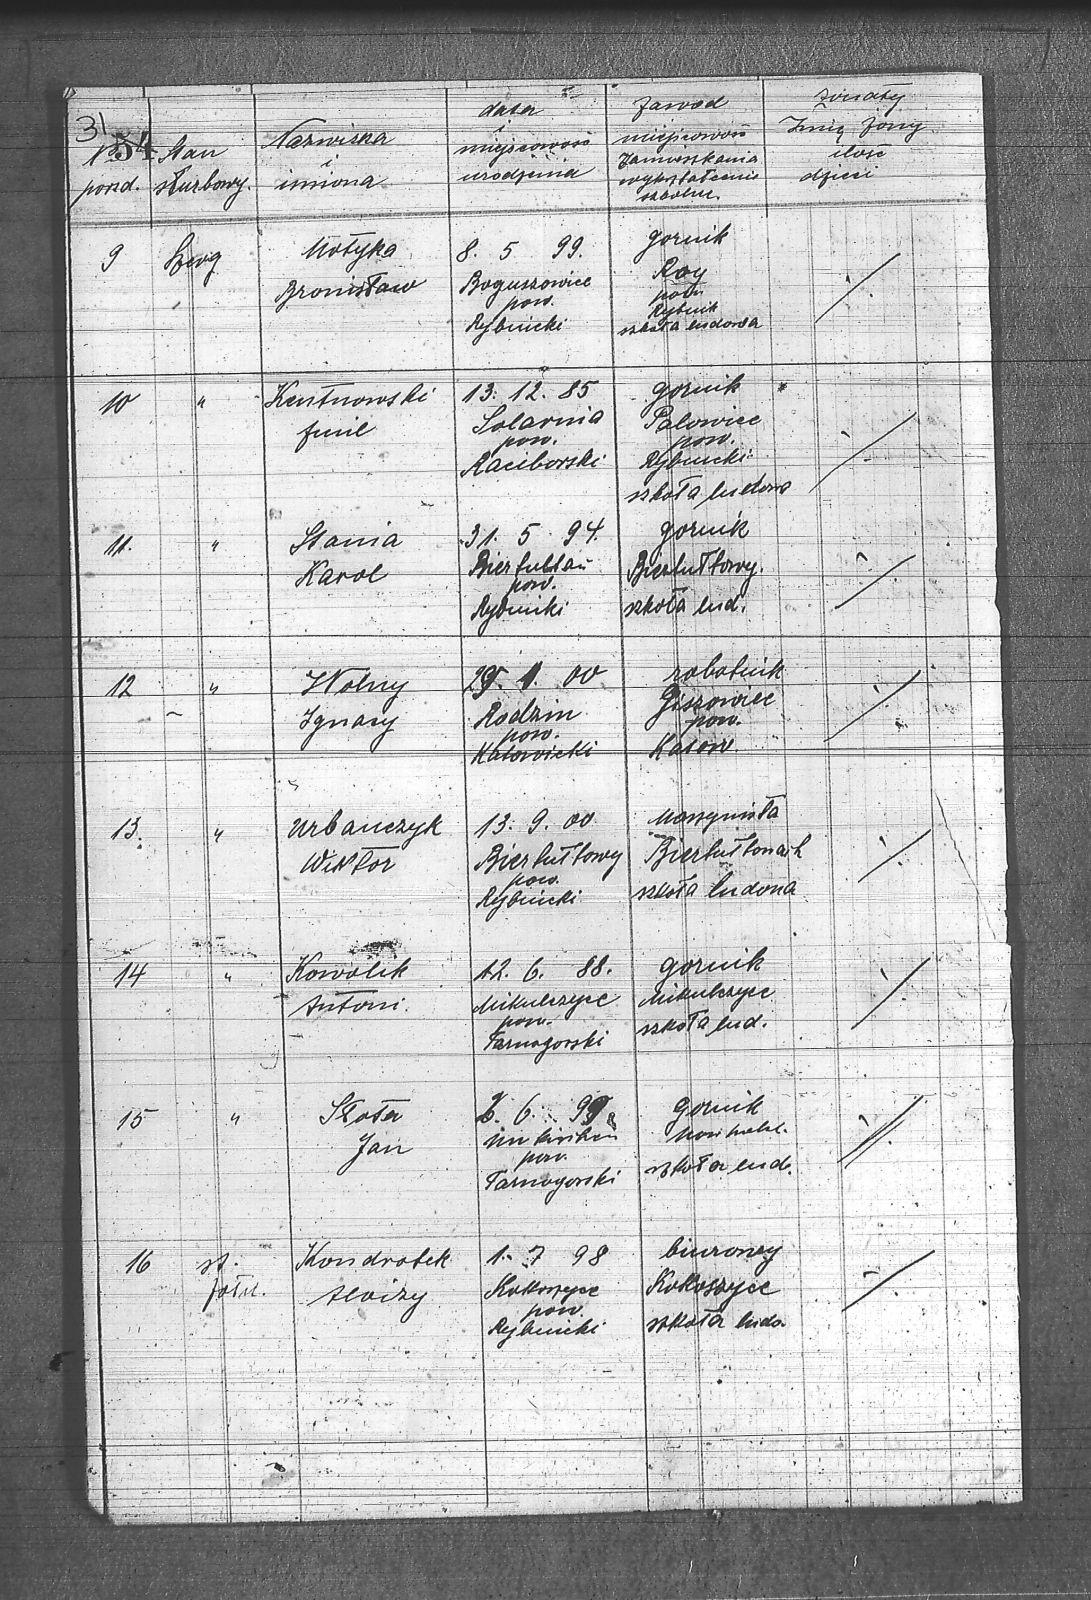 31
54
Nr
porzd.
Stan
służbowy.
Nazwiska
i
imiona
data
i
miejscowość
urodzenia
Zawód
miejscowość
Zamieszkania
wykształcenie
szkolne.
Żonaty
Imię żony
ilość
dzieci
9
Szereg
Motyka
Bronisław
8. 5 99.
Boguszowice
pow.
Rybnicki
gornik
Roy
pow
Rybnik
szkoła ludowa
10
"
Emil
13. 12. 85
Solarnia
pow.
Raciborski
gornik
Palowice
pow.
Rybnicki
szkoła ludowa
11.
"
Stania
Karol
31. 5 94.
pow.
Rybnicki
gornik
Biertułtowy.
szkoła lud.
12
"
Wolny
Ignacy
00
Rodzin
pow.
Katowicki
robotnik
Giszowiec
pow.
Katow.
13.
"
Urbanczyk
Wiktor
13. 9. 00
Biertułtowy
pow.
Rybnicki
Maszynista
Biertułtowach
szkoła ludowa
14
"
Kowolik
Antoni.
12. 6. 88.
Mikulczyce
pow.
Tarnogorski
gornik
Mikulczyce
szkoła lud.
15
"
Jan
6.
pow.
Tarnogorski
gornik
szkoła lud.
16
st.
żołn.
Kondrotek
Alojzy
1. 7 98
Kokoszyce
pow.
Rybnicki
biurowy
Kokoszyce
szkoła ludo.